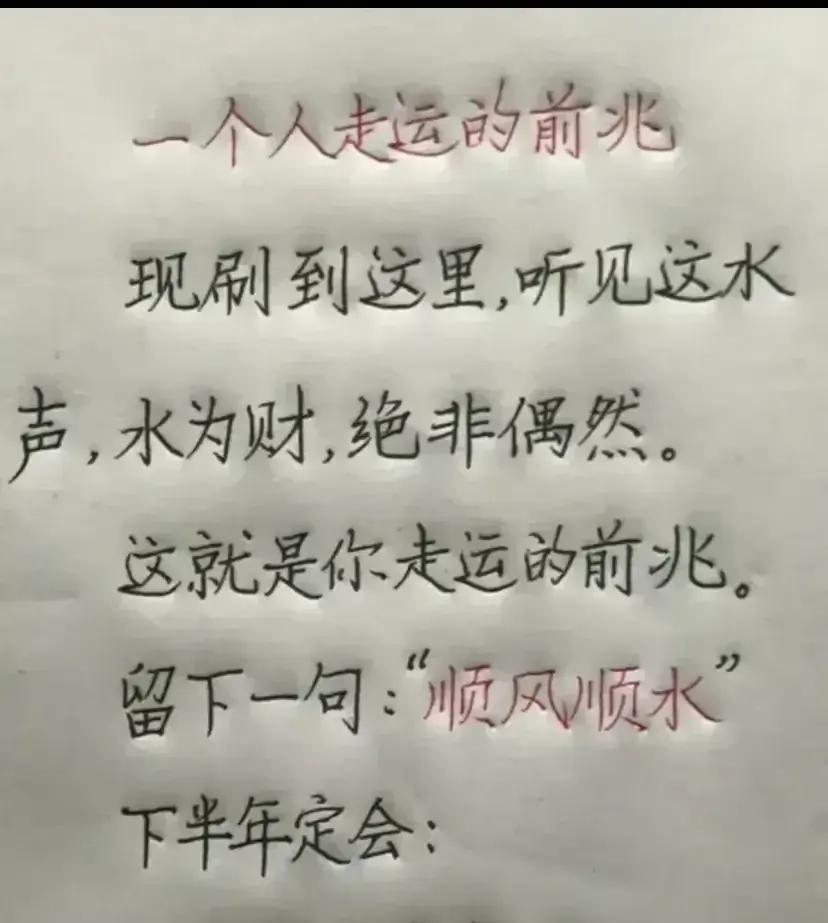 一个人走运的前兆
现刷到这里,听见这水
声,水为财,绝非偶然。
这就是你走运的前兆。
留下一句:“顺风顺水”
下半年定会: